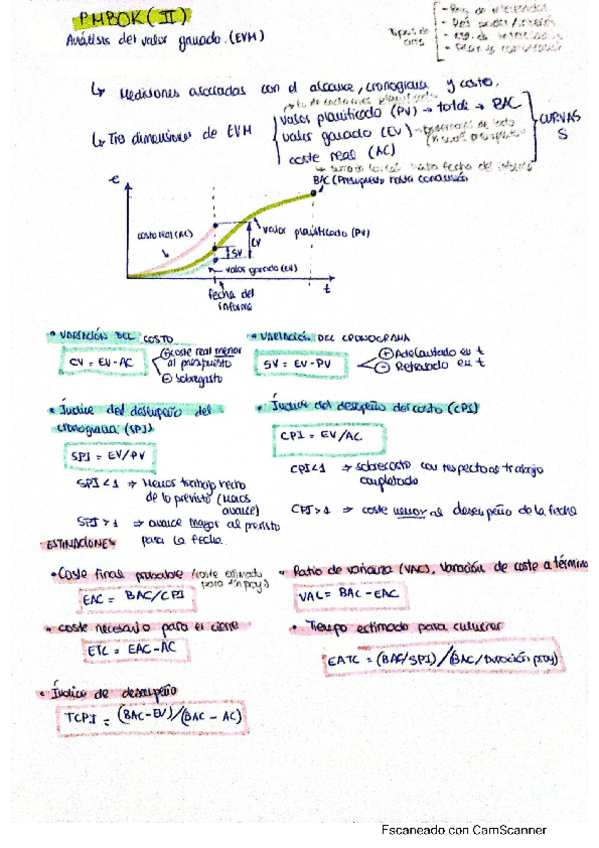 PMBOK (II)
Análisis del valor ganado. (EVM)
↳ Mediciones asociadas con el alcance, cronograma y costes.
↳ Tres dimensiones de EVM
valor planificado (PV) → total → BAC
valor ganado (EV)
coste real (AC)
CURVAS
S
BAC (Presupuesto hasta conclusión)
€
costo real (AC)
valor planificado (PV)
CV
SV
valor ganado (EV)
t
fecha del
informe
• VARIACIÓN DEL COSTO
CV = EV - AC
⊕ coste real menor
al presupuesto
⊖ Sobregasto
• VARIACIÓN DEL CRONOGRAMA
SV = EV - PV
⊕ Adelantado en t
⊖ Retrasado en t
• Índice del desempeño del
cronograma (SPI)
SPI = EV/PV
SPI < 1 ⇒ Menos trabajo hecho
de lo previsto (Menos
avance)
SPI > 1 ⇒ avance mayor al previsto
para la fecha.
• Índice del desempeño del costo (CPI)
CPI = EV/AC
CPI < 1 ⇒ sobrecosto con respecto al trabajo
completado
CPI > 1 ⇒ coste menor al desempeño de la fecha
ESTIMACIONES
• Coste final probable (coste estimado
para fin proy)
EAC = BAC/CPI
• Ratio de varianza (VAC). Variación de coste a término
VAC = BAC - EAC
• coste necesario para el cierre
ETC = EAC - AC
• Tiempo estimado para culminar
EATC = (BAC/SPI) / (BAC/Duración proy)
• Índice de desempeño
TCPI = (BAC - EV) / (BAC - AC)
Escaneado con CamScanner